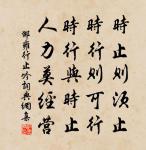 時止則須止
時行則可行
時行與時止
人力莫經營
邵雍行止吟詞典網集